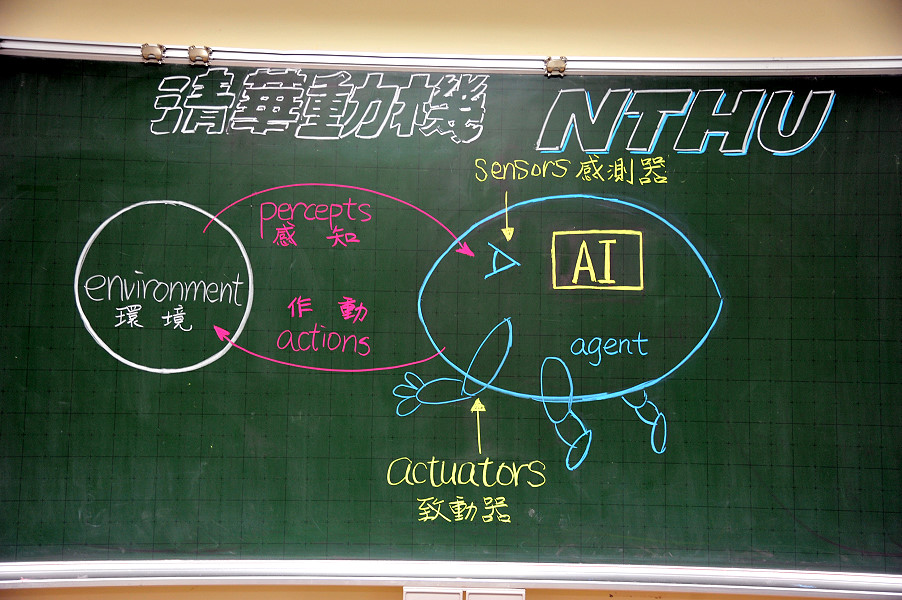 清華動機 NTHU
sensors 感測器
percepts
感知
AI
environment
環境
作動
actions
agent
actuators
致動器